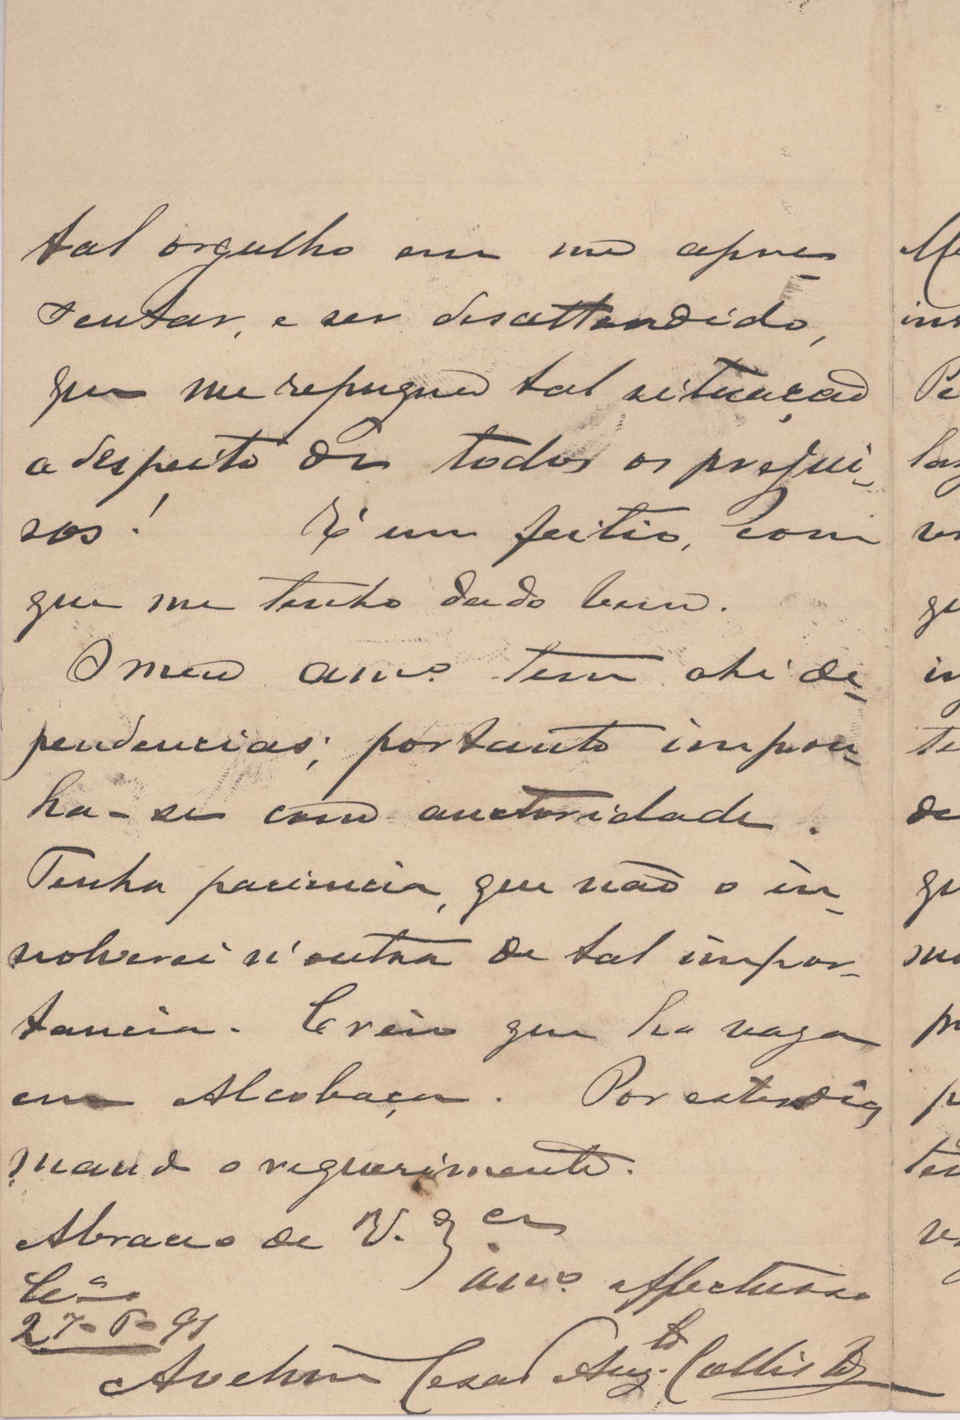 tal orgulho em me apre-
sentar, e ser desattendido,
que me repugna tal situação
a despeito de todos os prejui-
sos! É um feitio, com
que me tenho dado bem.
O meu amo. tem ahi de-
pendencias; portanto impon-
ha-se com auctoridade.
Tenha paciencia, que não o in-
volverei n'outra de tal impor-
tancia. Creio que ha vaga
em Alcobaça. Por estes dias
mando o requerimento.
Abraço de V. Exa
amo. affectuoso
Ca
27-6-91
Avelino Cesar Augto. Callisto